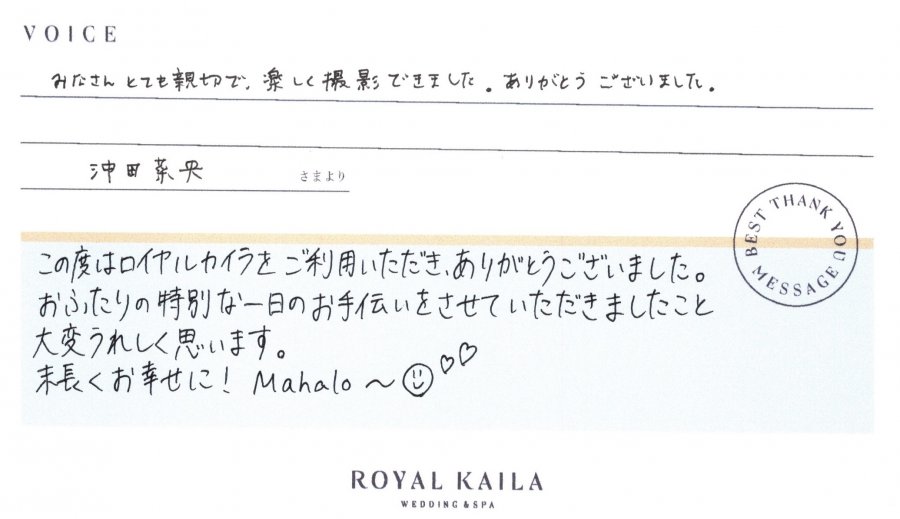 VOICE
みなさんとても親切で、楽しく撮影できました。ありがとうございました。
沖田菜央 さまより
BEST THANK YOU MESSAGE
この度はロイヤルカイラをご利用いただき、ありがとうございました。
おふたりの特別な一日のお手伝いをさせていただきましたこと
大変うれしく思います。
末長くお幸せに! Mahalo～
ROYAL KAILA
WEDDING & SPA